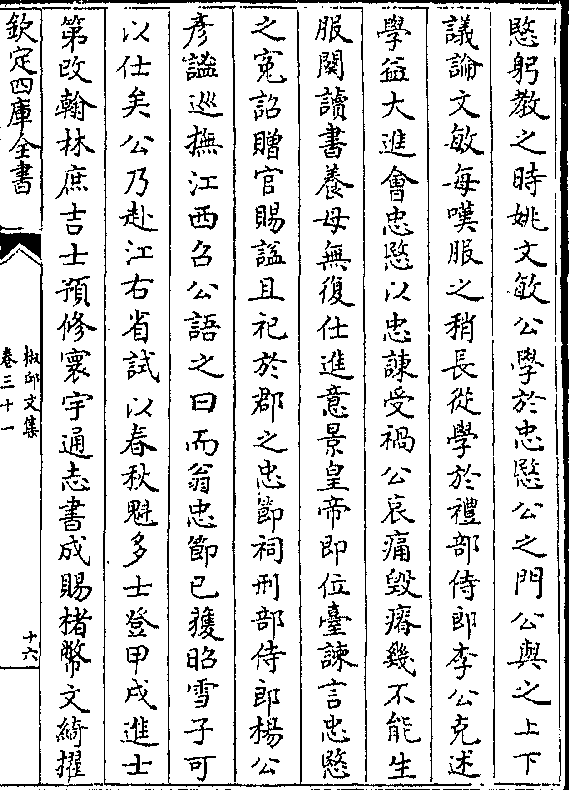 愍躬教之時姚文敏公學於忠愍公之門公與之上下
議論文敏每嘆服之稍長從學於禮部侍郎李公克述
學益大進會忠愍以忠諫受禍公哀痛毀瘠幾不能生
服闋讀書養母無復仕進意景皇帝即位臺諫言忠愍
之寃詔贈官賜諡且祀於郡之忠節祠刑部侍郎楊公
彦謐巡撫江西召公語之曰而翁忠節已獲昭雪子可
以仕矣公乃赴江右省試以春秋魁多士登甲戌進士
第改翰林庶吉士預修寰宇通志書成賜楮幣文綺擢
欽定四庫全書
椒邱文集
卷三十一
十六